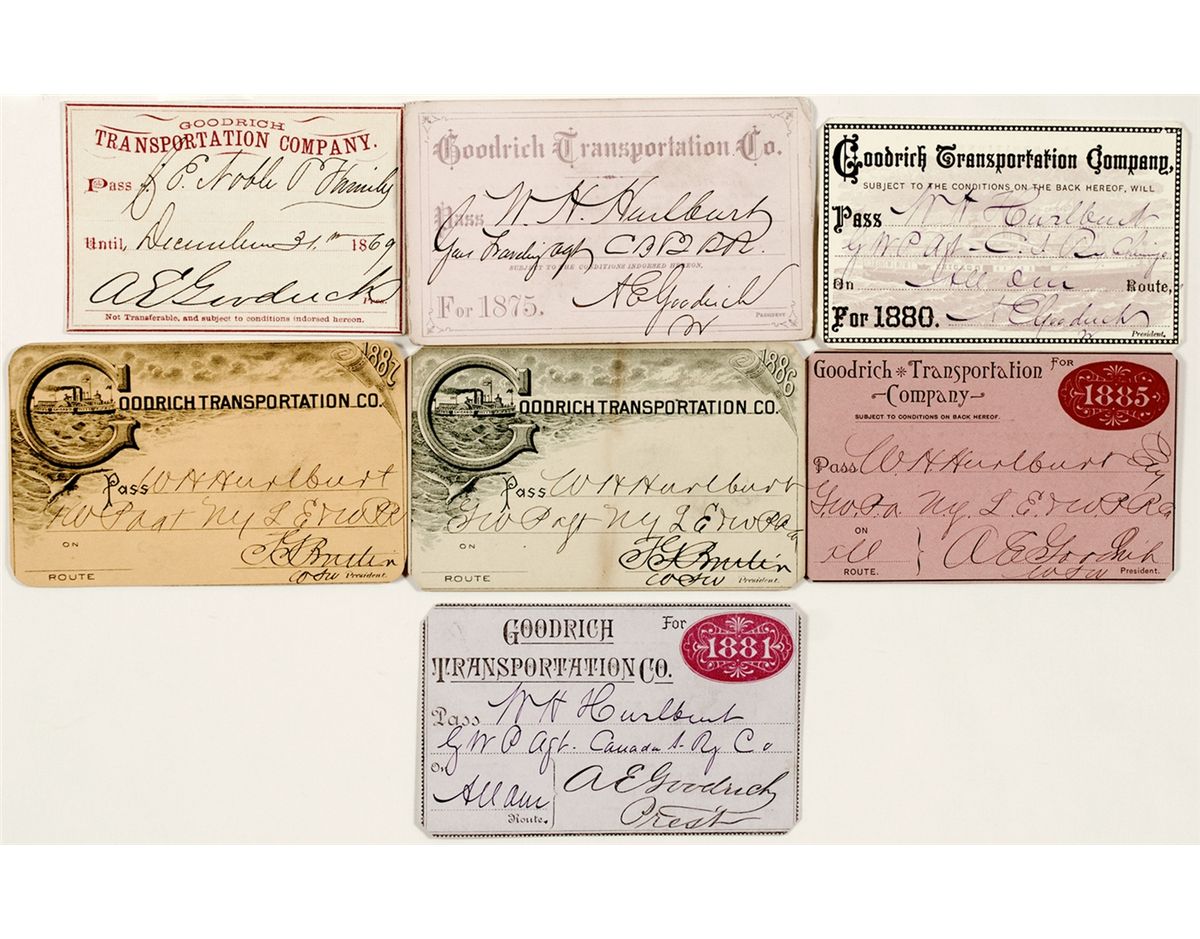 GOODRICH
TRANSPORTATION COMPANY.
Pass J. P. Noble & Family
Until December 31st 1869
A E Goodrich Pres.
Not Transferable, and subject to conditions indorsed hereon.
Goodrich Transportation Co.
Pass W. H. Hurlburt
SUBJECT TO THE CONDITIONS INDORSED HEREON,
For 1875. A E Goodrich
PRESIDENT
Goodrich Transportation Company,
SUBJECT TO THE CONDITIONS ON THE BACK HEREOF, WILL
Pass W H Hurlburt
G W P Agt - C. S. Ry
On All Our Route,
For 1880. A E Goodrich
President.
1887
GOODRICH TRANSPORTATION CO.
Pass W H Hurlburt
GW P agt NY L E & W RR
ON
ROUTE President.
1886
GOODRICH TRANSPORTATION CO.
Pass W H Hurlburt
GW P agt NY L E & W RR
ON
ROUTE President.
Goodrich Transportation FOR
Company 1885
SUBJECT TO CONDITIONS ON BACK HEREOF.
Pass W H Hurlburt
G.W. P.a. N.y. L. E. & W. R Rd
ON
all A E Goodrich
ROUTE. President.
GOODRICH For
TRANSPORTATION CO. 1881
Pass W H Hurlburt
G W P Agt. Canada S. Ry Co
On
All our A E Goodrich
Route. Prest